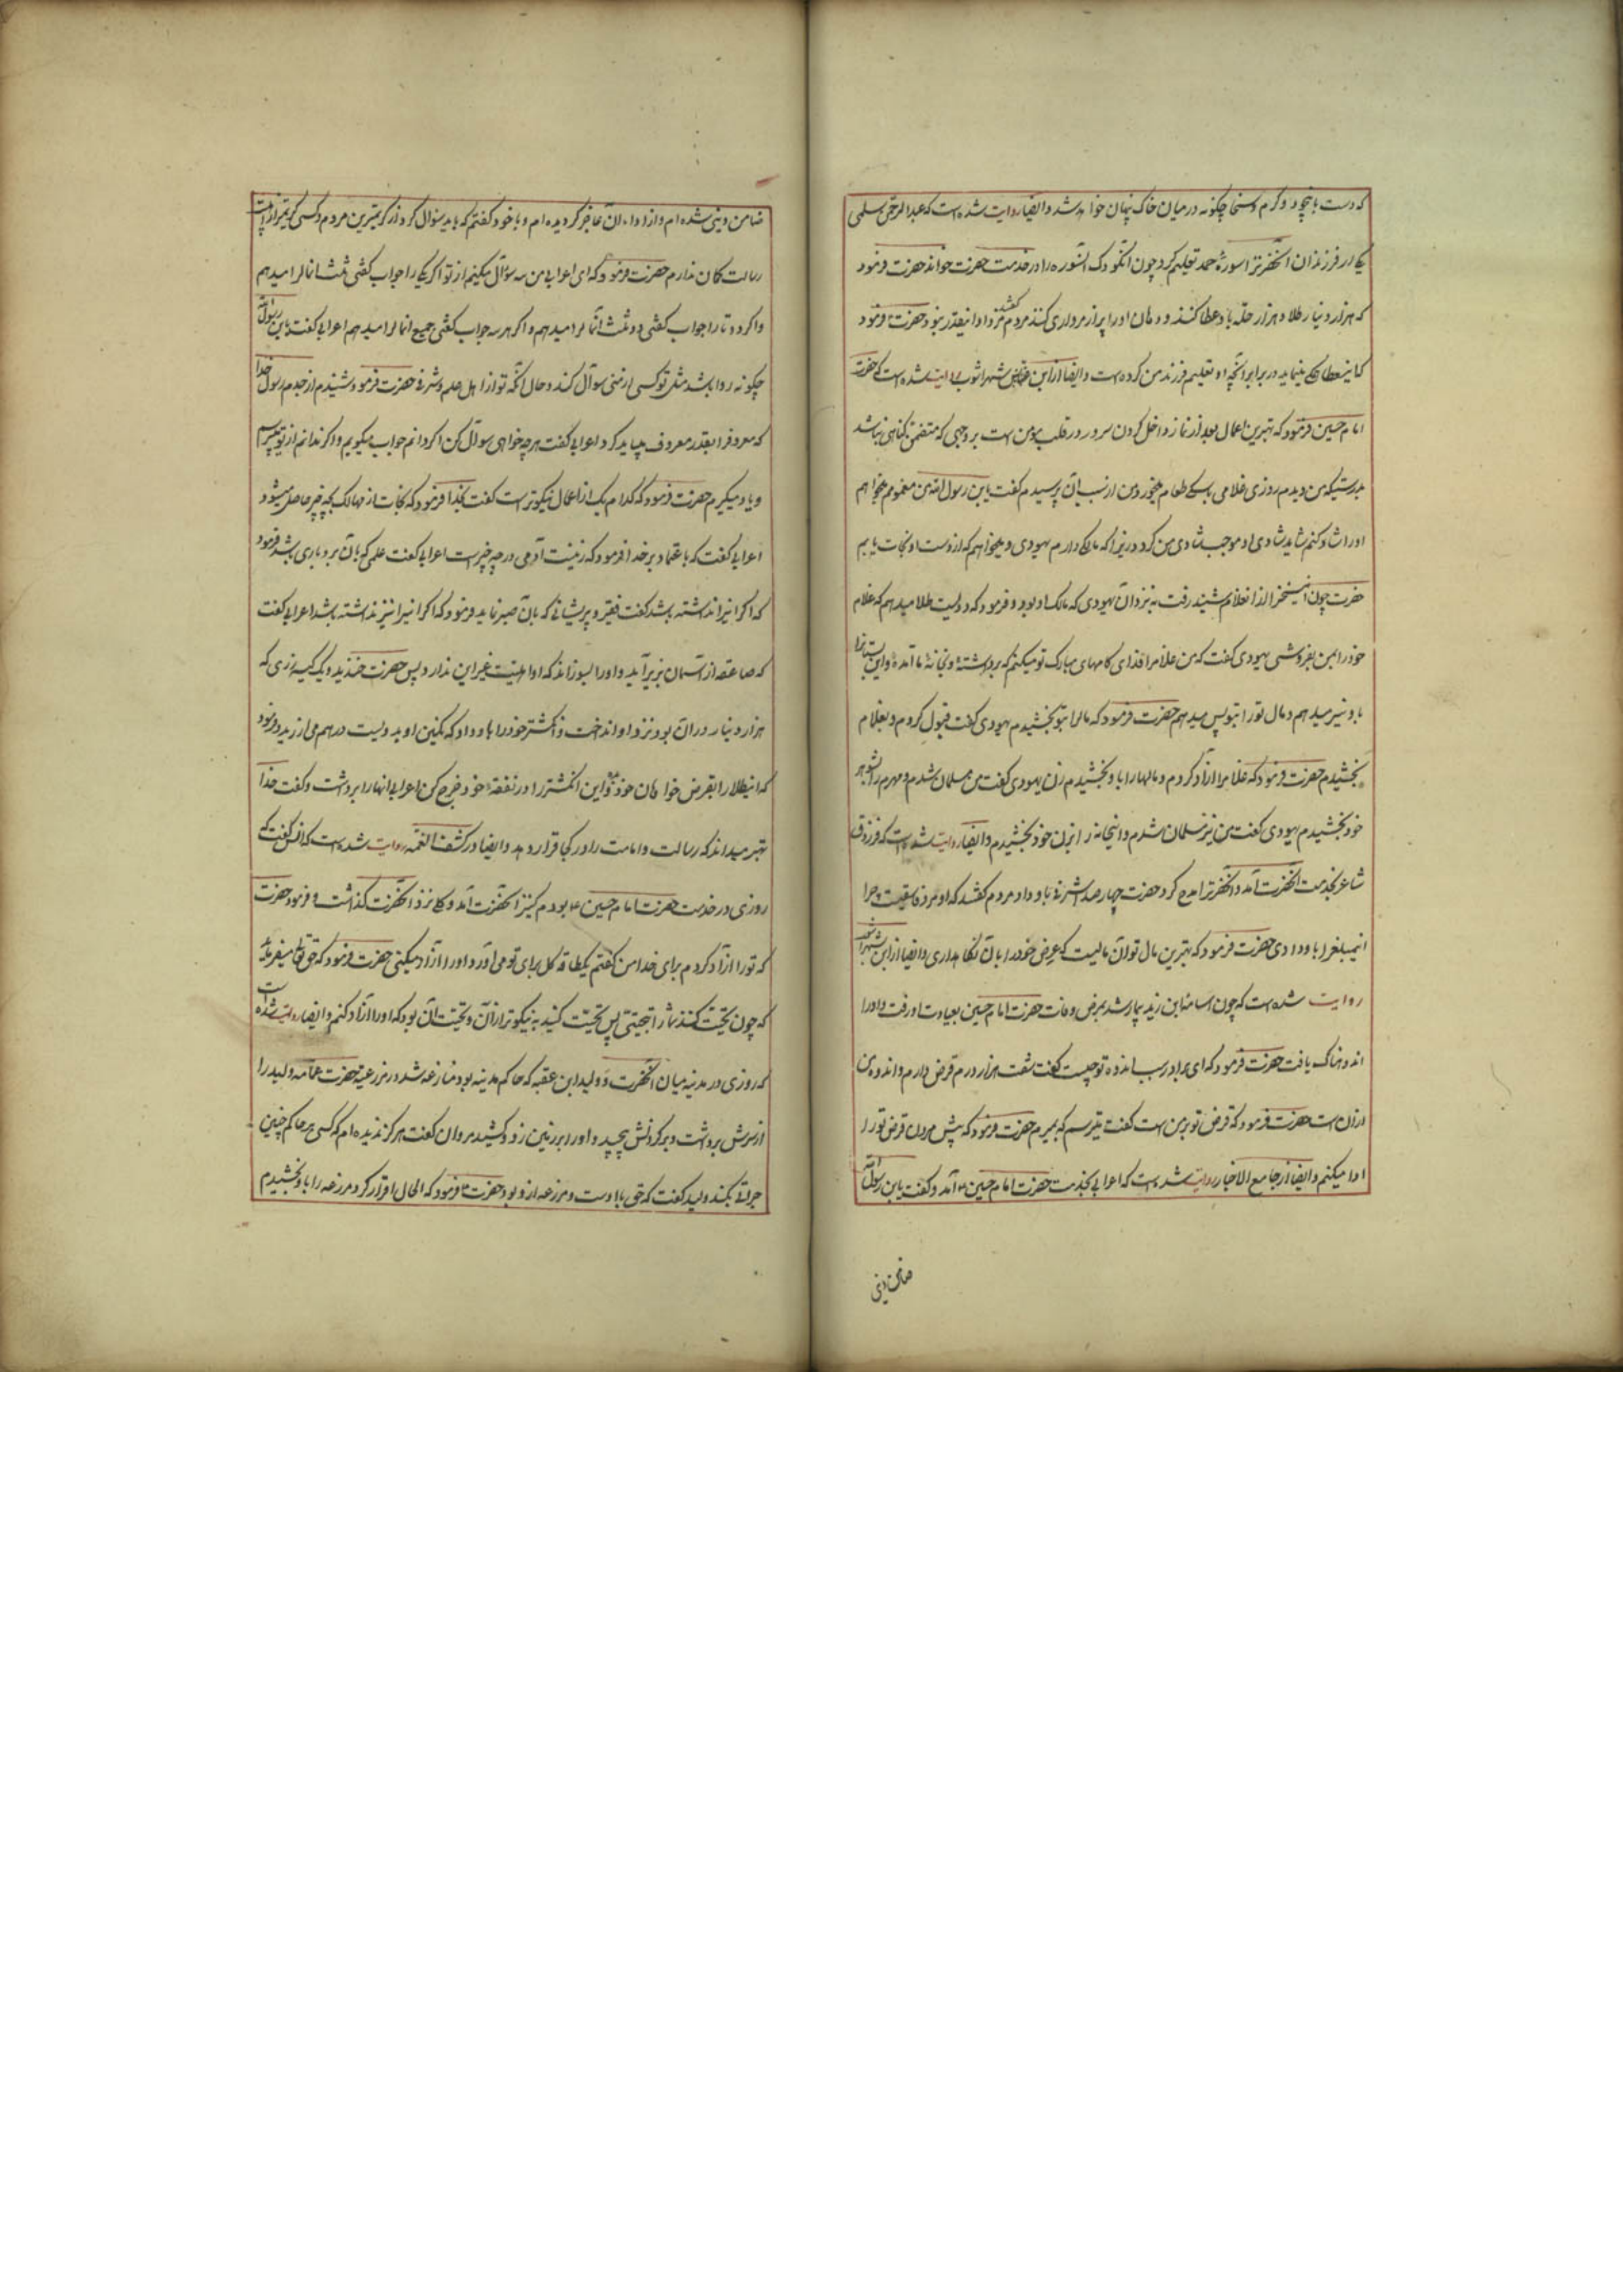 که دست باجود و کرم و سخا چگونه در میان خاک پنهان خواهد شد و ایضا روایت شده است که عبدالرحمن سلمی
یکی از فرزندان آنحضرترا سورهٔ حمد تعلیم کرد چون آنکودک آنسوره را در خدمت حضرت خواند حضرت فرمود
که هزار دینار طلا و هزار حله باو عطا کنند و دهان او را پر از مروارید کنند مردم گفتند مزد او اینقدر نبود حضرت فرمود
کاینعطا که مینماید در برابر آنچه او تعلیم فرزند من کرده است و ایضا از ابن شهراشوب روایت شده است که حضرت
امام حسین فرمود که بهترین اعمال بعد از نماز داخل کردن سرور در قلب مؤمن است بر وجهی که متضمن گناهی نباشد
بدرستیکه من دیدم روزی غلامی با سگی طعام میخورد من از سبب آن پرسیدم گفت یابن رسول الله من مغمومم میخواهم
او را شاد کنم شاید شادی او موجب شادی من گردد زیرا که مالکی دارم یهودی و میخواهم که از دست او نجات یابم
حضرت چون این سخن را از آنغلام شنید رفت به نزد آن یهودی که مالک او بود و فرمود که دویست طلا میدهم که غلام
خود را بمن بفروشی یهودی گفت که من غلامرا فدای گامهای مبارک تو میکنم که برداشتهٔ و بخانهٔ ما آمدهٔ و این بستانرا
باو نیز میدهم و مال تو را بتو پس میدهم حضرت فرمود که مالرا بتو بخشیدم یهودی گفت قبول کردم و بغلام
بخشیدم حضرت فرمود که غلامرا آزاد کردم و مالهارا باو بخشیدم زن یهودی گفت من مسلمان شدم و مهرم را بشوهر
خود بخشیدم یهودی گفت من نیز مسلمان شدم و اینخانه را بزن خود بخشیدم و ایضا روایت شده است که فرزدق
شاعر بخدمت آنحضرت آمد و آنحضرترا مدح کرد حضرت چهار صد اشرفی باو داد مردم گفتند که او مرد فاسقیست چرا
اینمبلغرا باو دادی حضرت فرمود که بهترین مال تو آن مالیست که عرض خود را بآن نگاهداری و ایضا از ابن شهراشوب
روایت شده است که چون اسامة ابن زید بیمار شد بمرض وفات حضرت امام حسین بعیادت او رفت و او را
اندوهناک یافت حضرت فرمود که ای برادر سبب اندوه تو چیست گفت شصت هزار درم قرض دارم و اندوه من
از آن است حضرت فرمود که قرض تو بر من است گفت میترسم که بمیرم حضرت فرمود که پیش از مردن قرض تو را
ادا میکنم و ایضا از جامع الاخبار روایت شده است که اعرابی بخدمت حضرت امام حسین آمد و گفت یابن رسول الله
ضامن دینی
ضامن دینی شده ام و از ادای آن عاجز گردیده ام و با خود گفتم که باید سؤال کرد از کریمترین مردم و کسی کریمتر از اهلبیت
رسالت گمان ندارم حضرت فرمود که ای اعرابی من سه سؤال میکنم از تو اگر یکی را جواب گفتی ثلث انمالرا میدهم
و اگر دو تا را جواب گفتی دو ثلث انمالرا میدهم و اگر هر سه جواب گفتی جمیع انمالرا میدهم اعرابی گفت یابن رسول الله
چگونه روا باشد مثل تو کسی از منی سوال کند و حال آنکه تو از اهل علم و شرفی حضرت فرمود شنیدم از جدم رسول خدا
که معروفرا بقدر معروف میباید کرد اعرابی گفت هر چه خواهی سوال کن اگر دانم جواب میگویم و اگر ندانم از تو میپرسم
و یاد میگیرم حضرت فرمود که کدام یک از اعمال نیکوتر است گفت بخدا فرمود که نجات از مهالک بچه چیز حاصل میشود
اعرابی گفت که باعتماد بر خدا فرمود که زینت آدمی در چه چیز است اعرابی گفت علمی که بآن بردباری باشد فرمود
که اگر آنرا نداشته باشد گفت فقیر و پریشانی که بآن صبر نماید فرمود که اگر آنرا نیز نداشته باشد اعرابی گفت
که صاعقه از آسمان بزیر آید و او را بسوزاند که او اهلیت غیر این ندارد پس حضرت خندید و یک کیسه زری که
هزار دینار در آن بود نزد او انداخت و انگشتر خود را باو داد که نگین او بدویست درهم می ارزید و فرمود
که اینطلا را بقرض خواهان خود ده و این انگشتر را در نفقهٔ خود خرج کن اعرابی آنها را برداشت و گفت خدا
بهتر میداند که رسالت و امامت را در کجا قرار دهد و ایضا در کشف الغمه روایت شده است که انس گفت که
روزی در خدمت حضرت امام حسین بودم کنیز آنحضرت آمد و گلی نزد آنحضرت گذاشت و فرمود حضرت
که تو را آزاد کردم برای خدا من گفتم یکطاقه گل برای تو می آورد او را آزاد میکنی حضرت فرمود که حق تعالی میفرماید
که چون تحیّت کنند شما را تحیتی پس تحیّت کنید به نیکوتر از آن و تحیّت آن بود که او را آزاد کنم و ایضا روایت شده است
که روزی در مدینه میان آنحضرت و ولید ابن عقبه که حاکم مدینه بود منازعه شد در مزرعهٔ حضرت عمامه ولید را
از سرش برداشت و بر گردنش پیچید و او را بر زمین زد و کشید مروان گفت هرگز ندیده ام که کسی بر حاکم چنین
جرأتی بکند ولید گفت که حق با اوست و مزرعه از او بود حضرت فرمود که الحال اقرار کردی مزرعه را باو بخشیدم